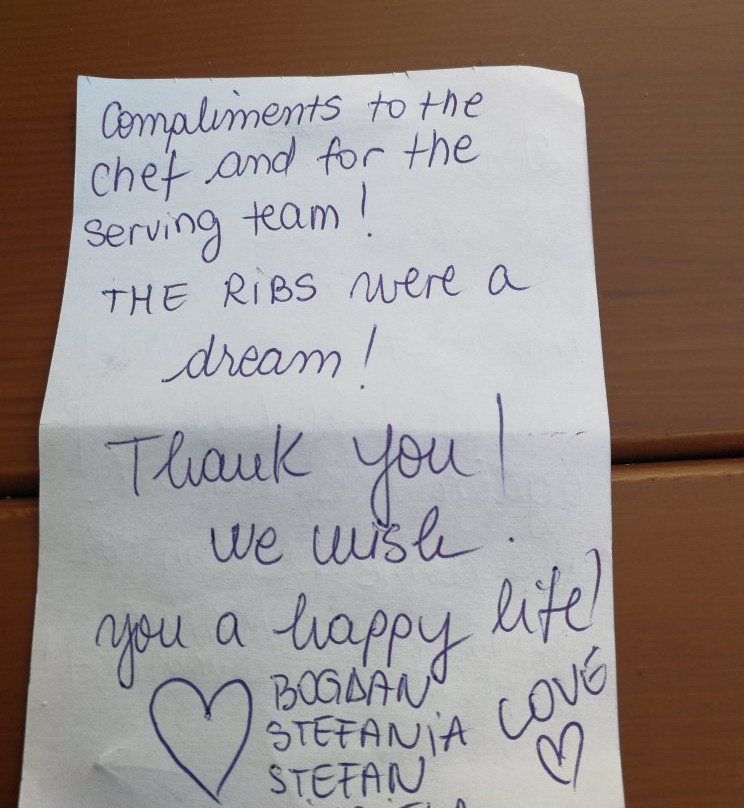 Compliments to the
chef and for the
serving team!
THE RiBS were a
dream!
Thank you!
we wish.
you a happy life!
BOGDAN
STEFANiA
STEFAN
LOVE